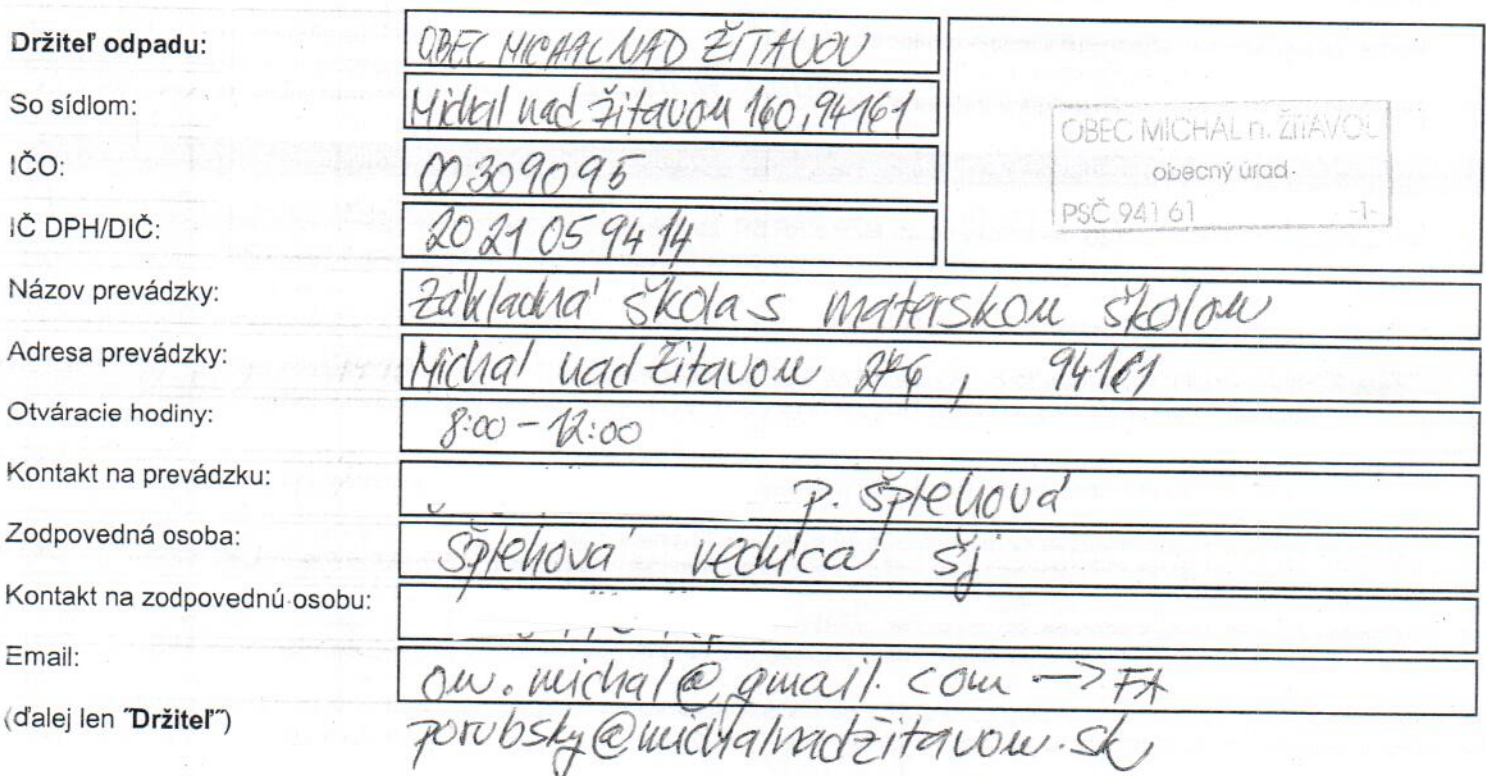 Držiteľ odpadu: OBEC MICHAL NAD ŽITAVOU
So sídlom: Michal nad Žitavou 160, 94161
OBEC MICHAL n. ŽITAVOU
obecný úrad
PSČ 941 61 -1-
IČO: 00309095
IČ DPH/DIČ: 2021059414
Názov prevádzky: Základná škola s materskou školou
Adresa prevádzky: Michal nad Žitavou, 94161
Otváracie hodiny: 8:00 - 12:00
Kontakt na prevádzku: p. Šplehová
Zodpovedná osoba: Šplehová vedúca ŠJ
Kontakt na zodpovednú osobu:
Email: ou.michal@gmail.com -> FA
(ďalej len "Držiteľ") porubsky@michalnadžitavou.sk